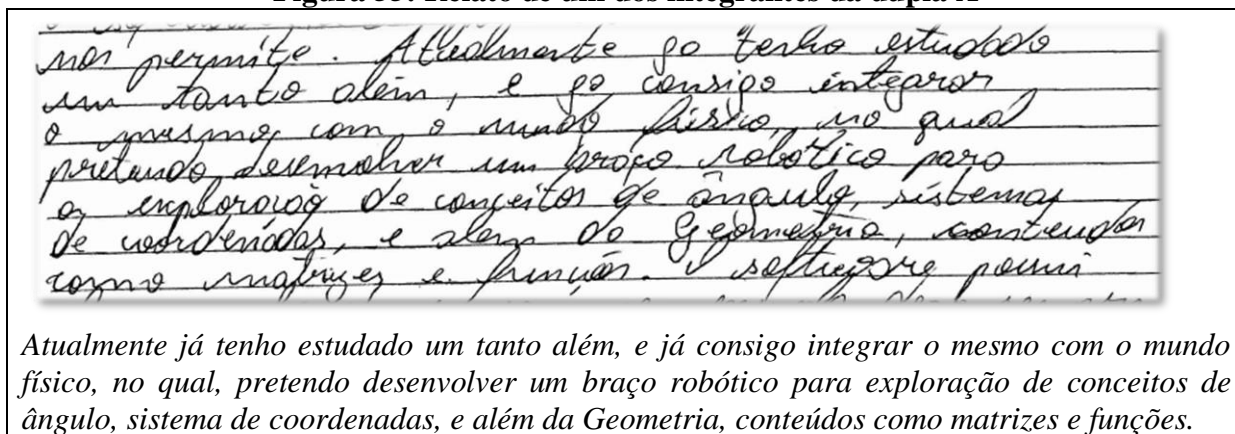 nos permite. Atualmente já tenho estudado
um tanto além, e já consigo integrar
o mesmo com o mundo físico, no qual
pretendo desenvolver um braço robótico para
a exploração de conceitos de ângulo, sistemas
de coordenadas, e além da Geometria, conteudos
como matrizes e funções. O software possui
Atualmente já tenho estudado um tanto além, e já consigo integrar o mesmo com o mundo
físico, no qual, pretendo desenvolver um braço robótico para exploração de conceitos de
ângulo, sistema de coordenadas, e além da Geometria, conteúdos como matrizes e funções.